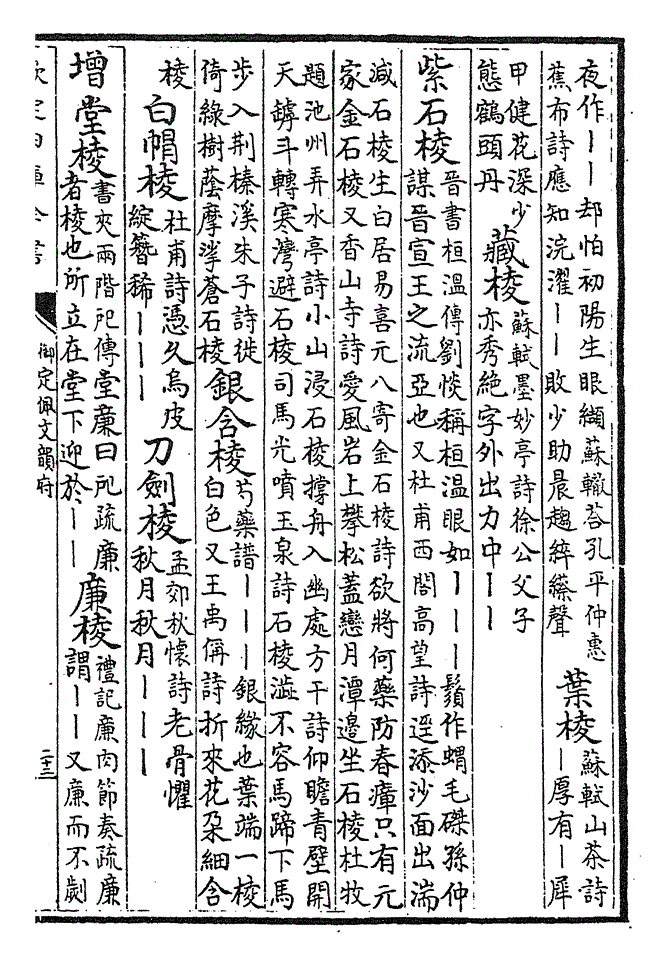 夜作〡〡却怕初陽生眼纈蘇轍荅孔平仲惠
蕉布詩應知浣濯〡〡敗少助晨趨綷縩聲
葉棱
蘇軾山茶詩
〡厚有〡犀
甲健花深少
態鶴頭丹
藏棱
蘇軾墨妙亭詩徐公父子
亦秀絶字外出力中〡〡
紫石棱
晉書桓温傳劉惔稱桓温眼如〡〡〡鬚作蝟毛磔孫仲
謀晉宣王之流亞也又杜甫西閣高望詩逕添沙面出湍
減石棱生白居易喜元八寄金石棱詩欲將何藥防春瘴只有元
家金石棱又香山寺詩愛風岩上攀松蓋戀月潭邊坐石棱杜牧
題池州弄水亭詩小山浸石棱撑舟入幽處方干詩仰瞻青壁開
天罅斗轉寒灣避石棱司馬光噴玉泉詩石棱澁不容馬蹄下馬
步入荆榛溪朱子詩徙
倚綠樹蔭摩挲蒼石棱
銀含棱
芍藥譜〡〡〡銀緣也葉端一棱
白色又王禹偁詩折來花朶細含
棱
白帽棱
杜甫詩憑久烏皮
綻簪稀〡〡〡
刀劍棱
孟郊秋懷詩老骨懼
秋月秋月〡〡〡
增堂棱
書夾兩階戺傳堂廉曰戺疏廉
者棱也所立在堂下迎於〡〡
廉棱
禮記廉肉節奏疏廉
謂〡〡又廉而不劌
欽定四庫全書
御定佩文韻府
二十三